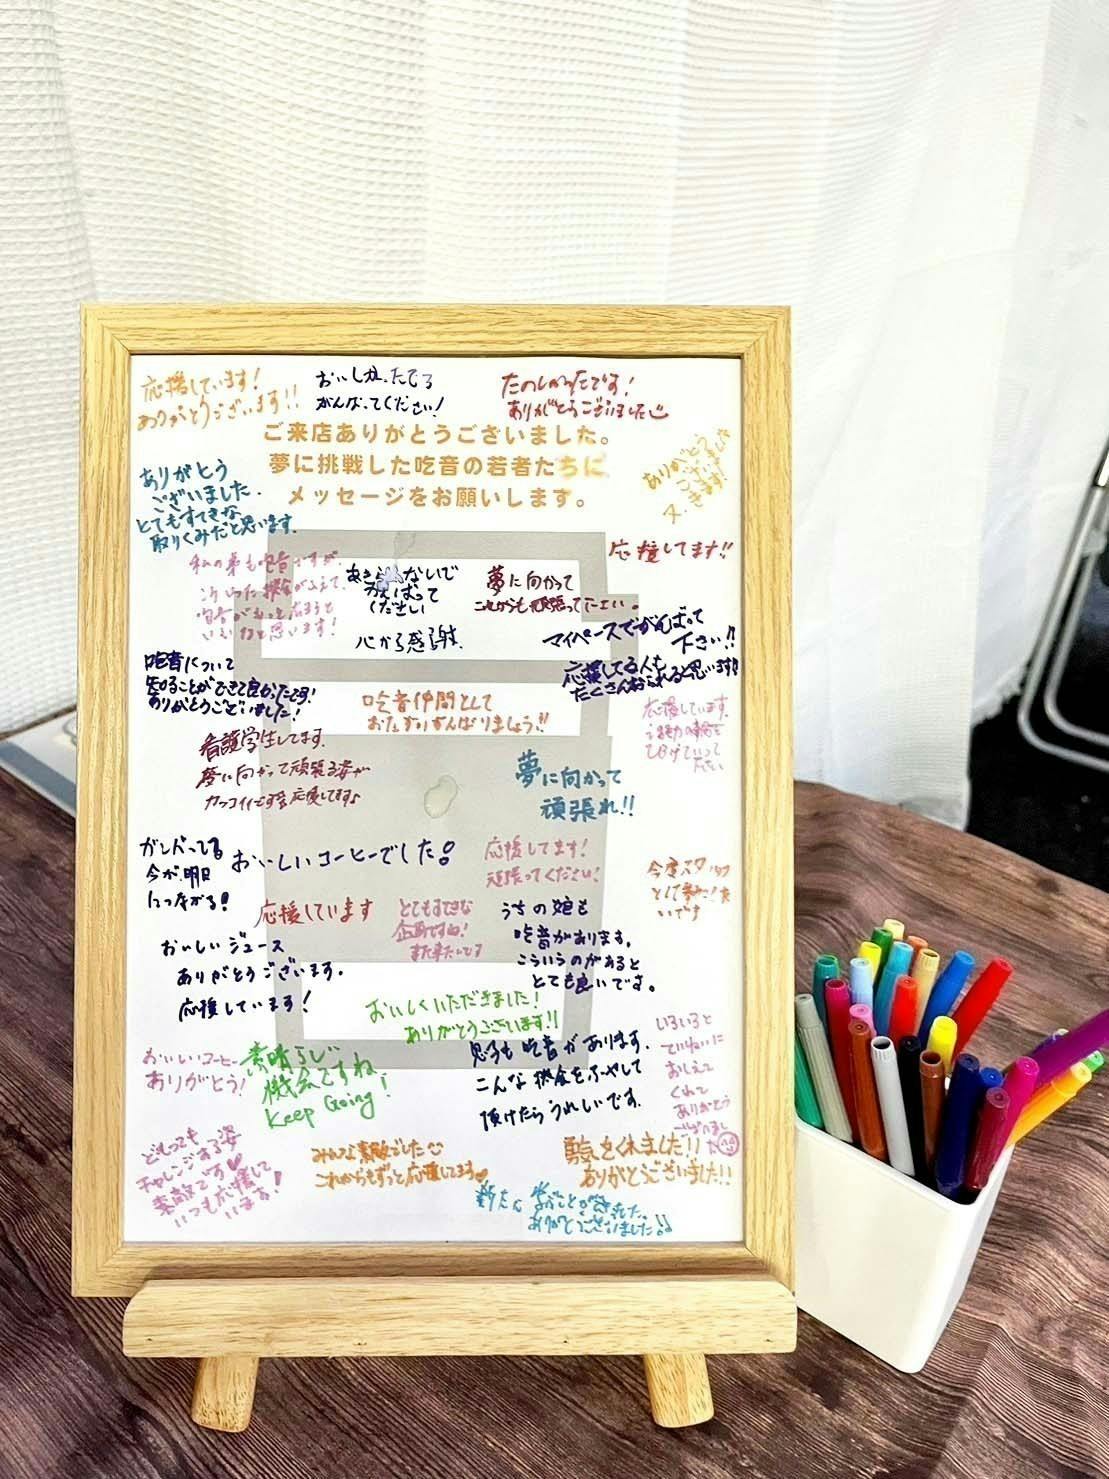 応援しています!
ありがとうございます!!
おいしかったです
がんばってください!
たのしかったです!
ありがとうございました
ご来店ありがとうございました。
夢に挑戦した吃音の若者たちに
メッセージをお願いします。
ありがとう
ございました
ありがとう
ございました.
とてもすてきな
取りくみだと思います.
応援してます!!
私の弟も吃音ですが、
こういった機会がふえて、
吃音がもっと広まると
いいなと思います!
あきらめないで
がんばって
ください
心から感謝.
夢に向かって
これからも頑張ってください。
マイペースでがんばって
下さい!!
応援してる人も
たくさんおられると思います!!
吃音について
知ることができて良かったです!
ありがとうございました!
吃音仲間として
おたがいがんばりましょう!!
応援しています.
ひろげていって
ください
看護学生してます.
夢に向かって頑張る姿が
カッコイイです 応援してます♪
夢に向かって
頑張れ!!
ガンバってる
今が、明日
につながる!
おいしいコーヒーでした!
応援してます!
頑張ってください!
今度スタッフ
として
いです
応援しています
とてもすてきな
企画ですね!
また来たいです
うちの娘も
吃音があります。
こういうのがあると
とても良いです。
おいしいジュース
ありがとうございます.
応援しています!
おいしくいただきました!
ありがとうございます!!
おいしいコーヒー
ありがとう!
素晴らしい
機会ですね
Keep Going!
息子も吃音があります.
こんな機会をふやして
頂けたらうれしいです.
いろいろと
ていねいに
おしえて
くれて
ありがとう
ございまし
た
どもっても
チャレンジする姿
素敵です♥
いつも応援して
います!
みんな素敵でした
これからもずっと応援してます♥
勇気をくれました!!
ありがとうございました!!
ありがとうございました!!